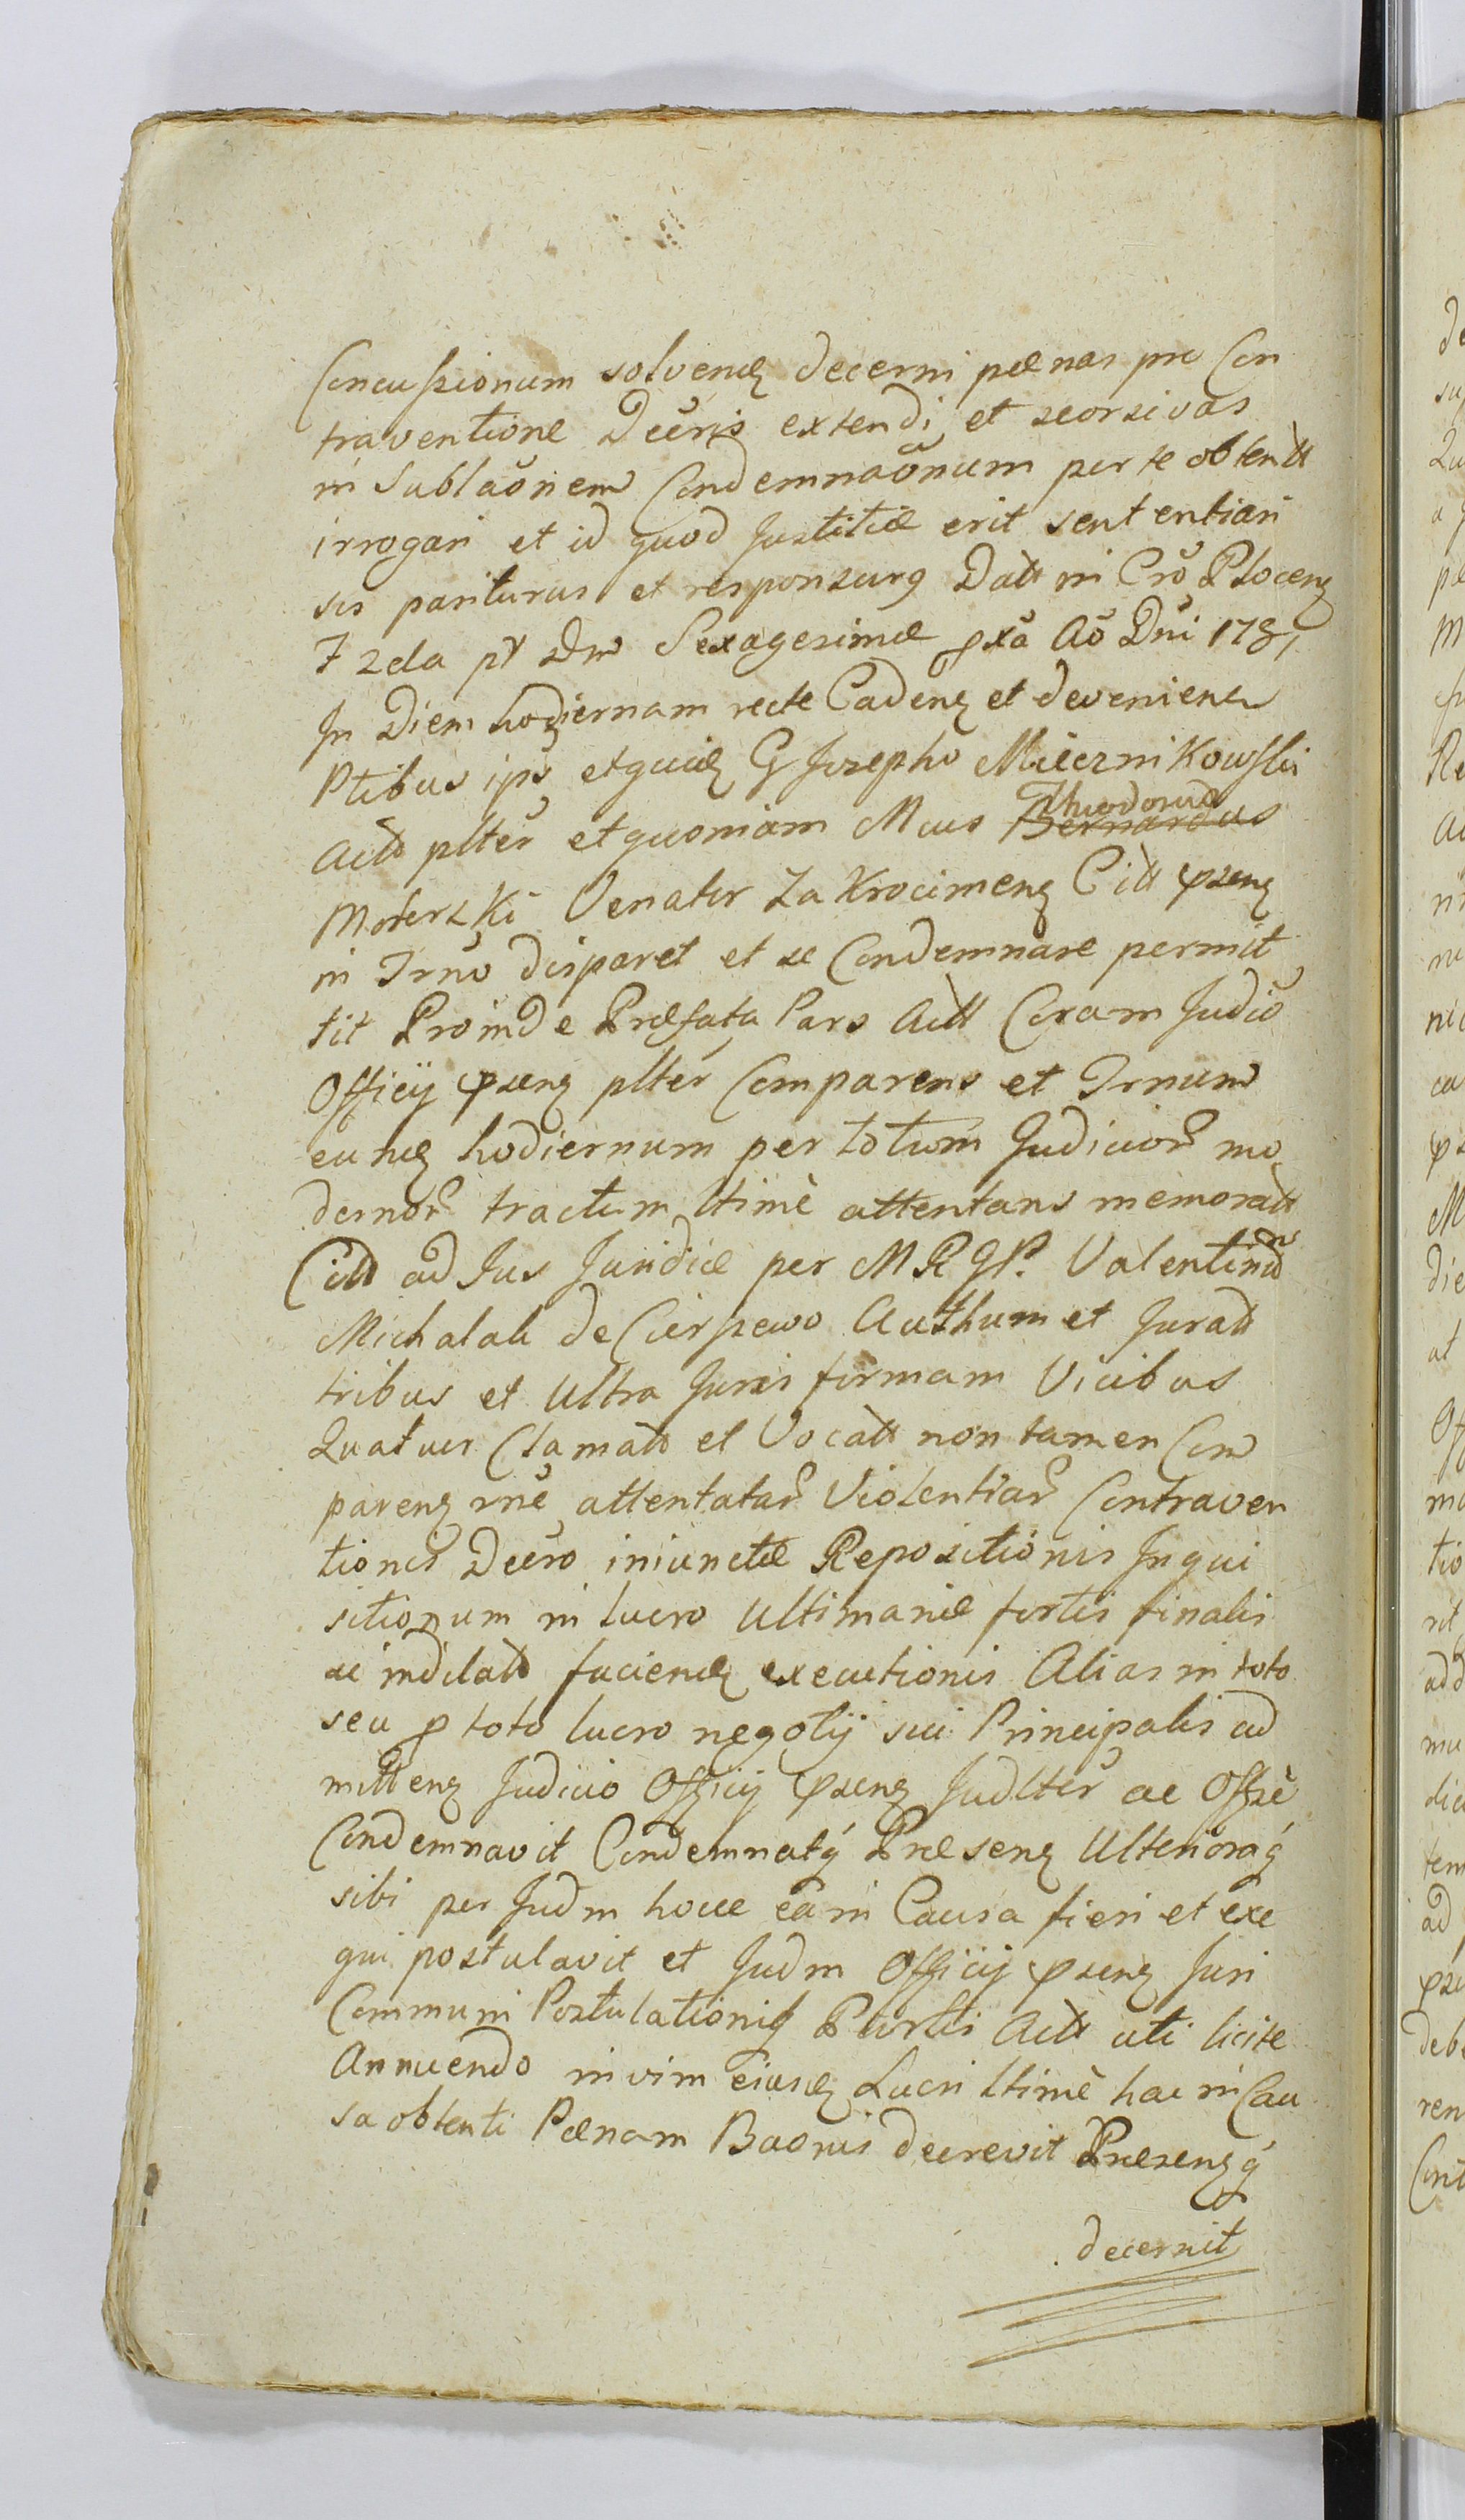 Concussionum solvend decerni pœnas pro Con
traventione Decris extendi et seorsivas
in Sublãonem Condemnãonum per te obtentt
irrogari et id quod Justitiæ erit sententiari
sis pariturus et responsurg Datt in Cro Plocens
F 2da pt Dm Sexagesimæ pxa Ao Dni 1781
In Diem hodiernam recte Cadens et devenien
Ptibus ips etquid G Josepho Miecznikowski
Actt plter et quoniam Mcus Bernardus Theodorus
Moderski Venator Zakrocimens Citt psens
in Trno disparet et se Condemnare permit
tit Proinde Præfata Pars Actt Coram Judio
Officij psens plter Comparens et Trnum
eund hodiernum per totum Judicior mo
dernor tractum ltime attentans memoratt
Citt ad Jus Juridice per M R GR. Valentinum
Michalak de Cierpewo Authum et Juratt
tribus et Ultra Juris formam Vicibus
Quatuor Clamatt et Vocatt non tamen Com
parens rne attentatar Violentiar Contraven
tionis Decro iniunctæ Repositionis Inqui
sitionum in lucro Ultimariæ fortis finalis
ac indilatt faciend executionis Alias in toto
seu p toto lucro negotij sui Principalis ad
mittens Judicio Officij psens Judlter ac Offse
Condemnavit Condemnatq Præsens Ulterioraq
sibi per Judm hocce ea in Causa fieri et exe
qui postulavit et Judm Officij psens Juri
Communi Postulationiq Partis Actt uti licite
Annuendo in vim eiusd Lucri ltime hac in Cau
sa obtenti Pœnam Baonis decrevit Præsensq
decernit